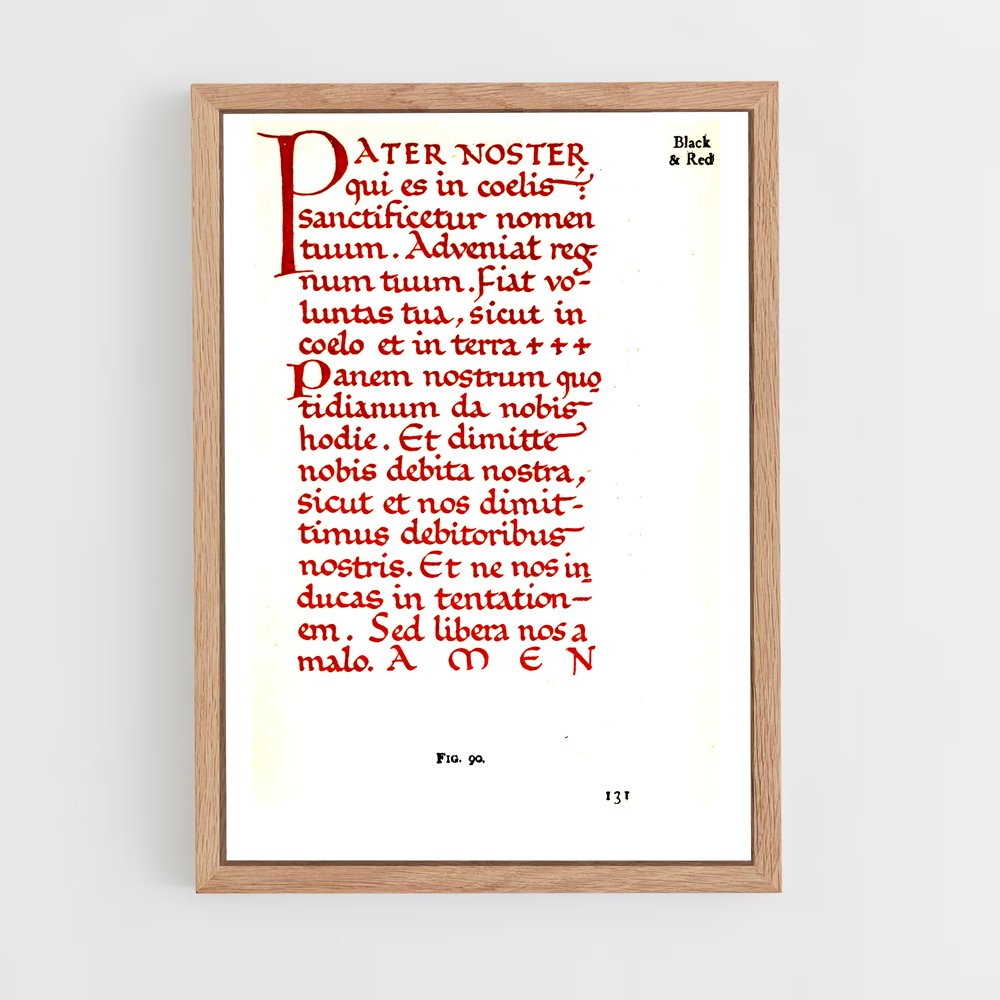 PATER NOSTER
qui es in coelis :
sanctificetur nomen
tuum. Adveniat reg-
num tuum. Fiat vo-
luntas tua, sicut in
coelo et in terra + + +
Panem nostrum quo
tidianum da nobis
hodie. Et dimitte
nobis debita nostra,
sicut et nos dimit-
timus debitoribus
nostris. Et ne nos in
ducas in tentation-
em. Sed libera nos a
malo. A M E N
Black
& Red
FIG. 90.
131